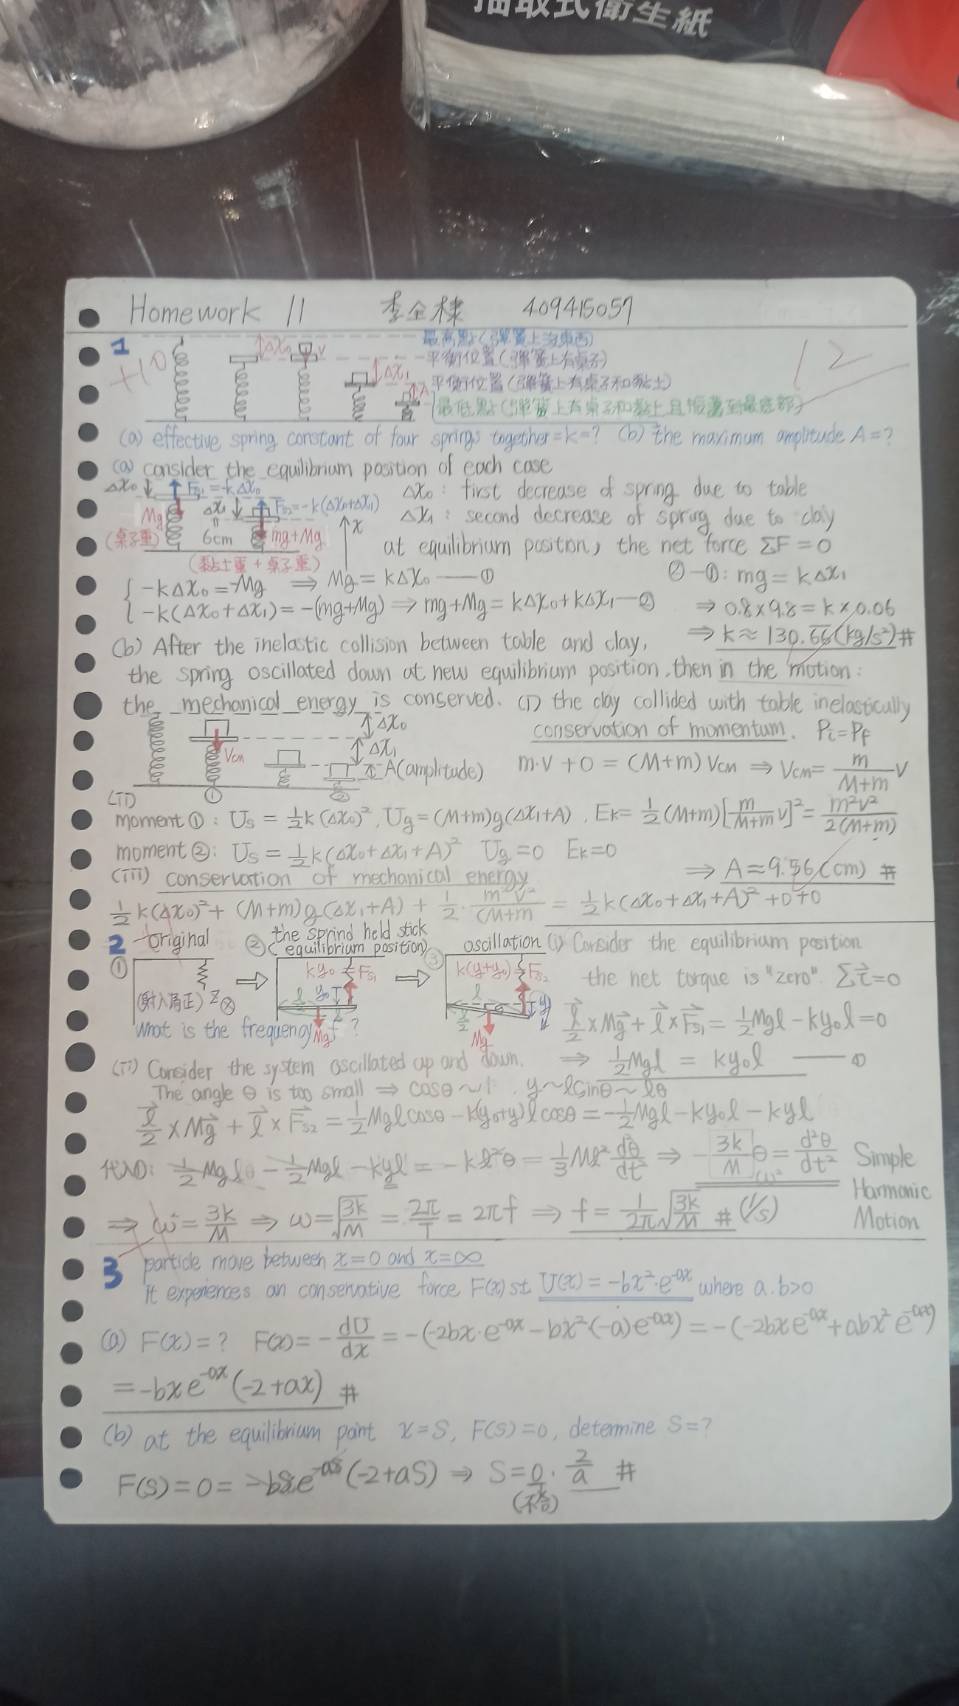 抽取式衛生紙
Homework 11 409415057
12
1
+10
最高點(彈簧上沒東西)
平衡位置(彈簧上有桌子)
平衡位置(彈簧上有桌子和黏土)
最低點(彈簧上有桌子和黏土且振盪到最底部)
(a) effective spring constant of four springs together = k = ? (b) the maximum amplitude A = ?
(a) consider the equilibrium position of each case
Δx₀ : first decrease of spring due to table
Δx₁ : second decrease of spring due to clay
Mg (桌子重) 6cm mg+Mg (黏土重 + 桌子重)
at equilibrium positon, the net force ΣF = 0
{ -kΔx₀ = -Mg ⇒ Mg = kΔx₀ — ① ② - ① : mg = kΔx₁
-k(Δx₀ + Δx₁) = -(mg+Mg) ⇒ mg+Mg = kΔx₀ + kΔx₁ — ② ⇒ 0.8 × 9.8 = k × 0.06
⇒ k ≈ 130.66 (kg/s²) #
(b) After the inelastic collision between table and clay,
the spring oscillated down at new equilibrium position, then in the motion:
the mechanical energy is conserved. (I) the clay collided with table inelastically
conservation of momentum. Pi = Pf
Δx₀
Δx₁
A (amplitude)
Vcm
① ②
m·v + 0 = (M+m) Vcm ⇒ Vcm = m/(M+m) V
(II)
moment ① : Us = ½k(Δx₀)², Ug = (M+m)g(Δx₁+A), Ek = ½(M+m)[m/(M+m) v]² = m²v²/2(M+m)
moment ② : Us = ½k(Δx₀+Δx₁+A)² Ug = 0 Ek = 0
(III) conservation of mechanical energy ⇒ A ≈ 9.56 (cm) #
½k(Δx₀)² + (M+m)g(Δx₁+A) + ½ · m²v²/(M+m) = ½k(Δx₀+Δx₁+A)² + 0 + 0
2 original ② the sprind held stick (equilibrium position) ③ oscillation (I) Consider the equilibrium position
① the net torque is "zero". Στ = 0
(射入為正)
ky₀ Fs₁ y₀ Mg
k(y+y₀) Fs₂ Mg
What is the frequency f ?
ℓ/2 × Mg + ℓ × Fs₁ = ½Mgℓ - ky₀ℓ = 0
(II) Consider the system oscillated up and down. ⇒ ½Mgℓ = ky₀ℓ — ①
The angle θ is too small ⇒ cosθ ~ 1. y ~ ℓsinθ ~ ℓθ
ℓ/2 × Mg + ℓ × Fs₂ = ½Mgℓcosθ - k(y₀+y)ℓcosθ = -½Mgℓ - ky₀ℓ - kyℓ
代入①: ½Mgℓ - ½Mgℓ - kyℓ = -kℓ²θ = ⅓Mℓ² d²θ/dt² ⇒ -3k/M θ = d²θ/dt² Simple
Harmonic
Motion
⇒ ω² = 3k/M ⇒ ω = √(3k/M) = 2π/T = 2πf ⇒ f = 1/2π √(3k/M) # (1/s)
3 particle move between x = 0 and x = ∞
It experiences an conservative force F(x) st. U(x) = -bx²·e^-ax where a.b>0
(a) F(x) = ? F(x) = -dU/dx = -(-2bx·e^-ax - bx²(-a)e^-ax) = -(-2bxe^-ax + abx²e^-ax)
= -bxe^-ax(-2+ax) #
(b) at the equilibrium point x = S, F(S) = 0, determine S = ?
F(S) = 0 = -bSe^-aS(-2+aS) ⇒ S = 0. 2/a #
(不合)